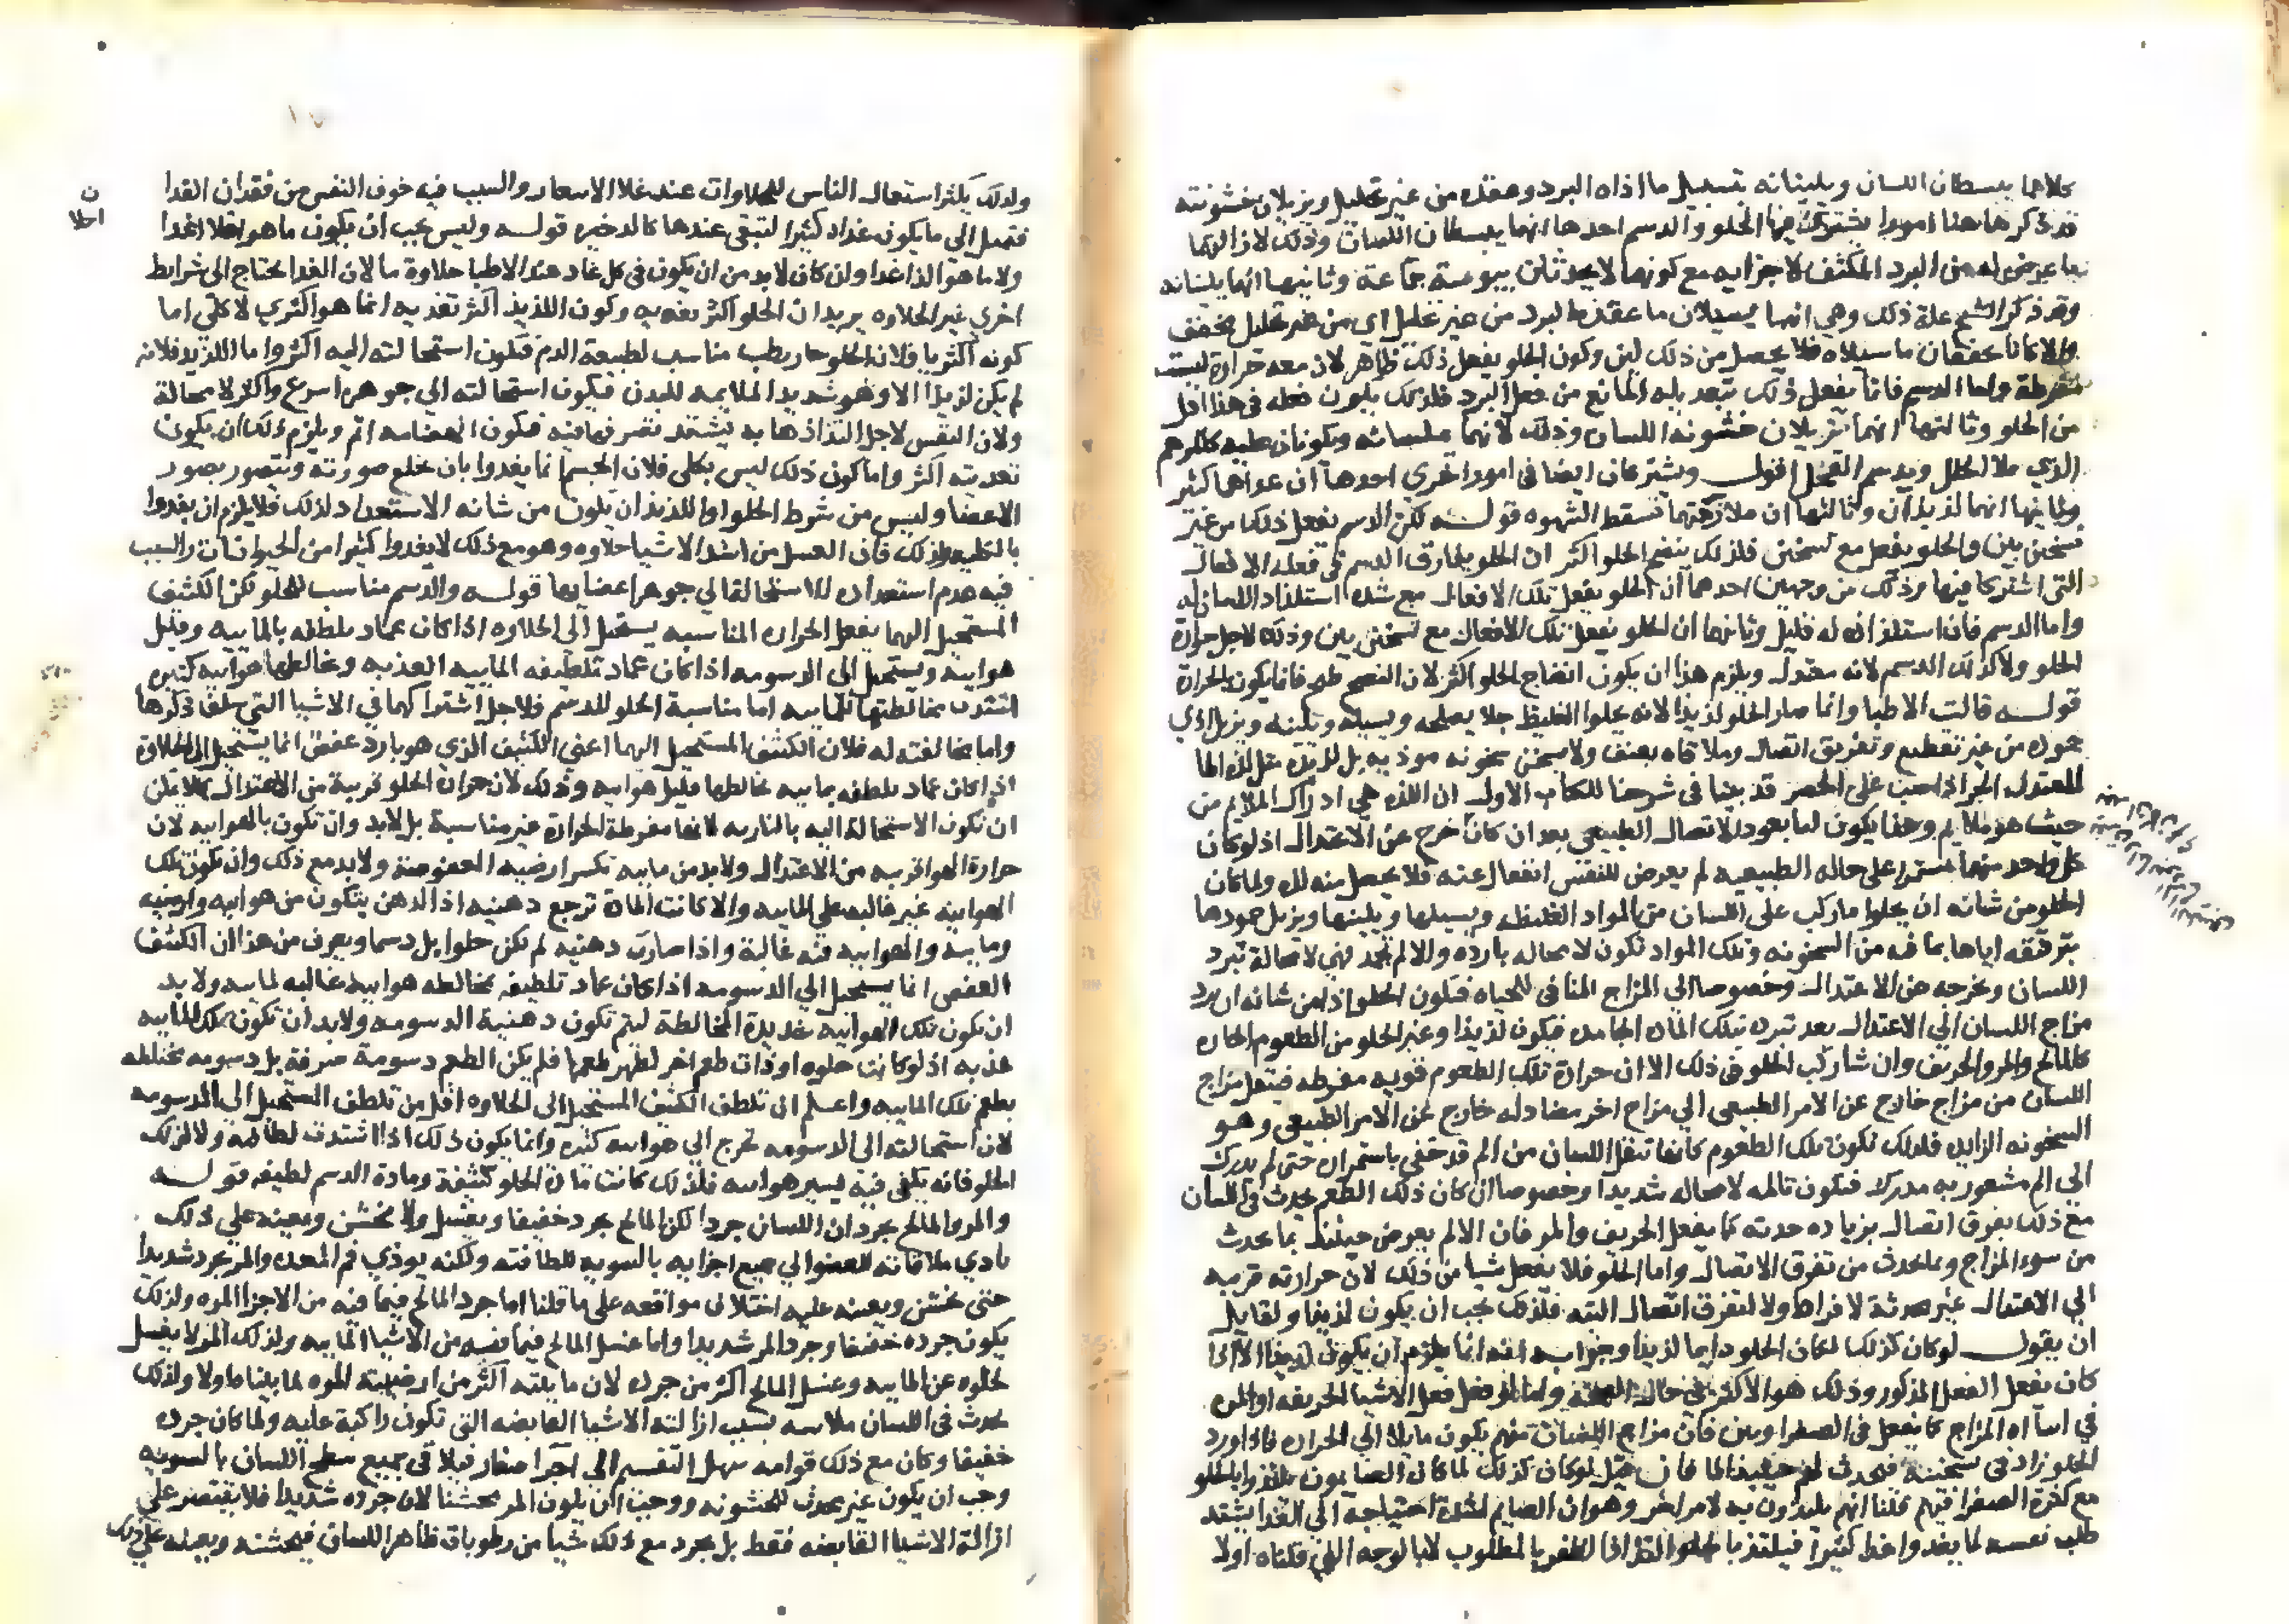 كلاهما يبسطان اللسان ويلينانه بتسييل ما اذاه البرد وعقده من غير تحليل ويزيلان خشونته
قد ذكر هاهنا امورا يشترك فيها الحلو والدسم احدها انهما يبسطان اللسان وذلك لازالتهما
ما عرض له من البرد المكثف لاجزايه مع كونهما لا يحدثان يبوسة جماعة وثانيها انهما يلينانه
وقد ذكر الشيخ علة ذلك وهي انهما يسيلان ما عقده البرد من غير تحليل اي من غير تحليل مجفف
والا كانا يجففان ما سيلاه فلا يحصل من ذلك لين وكون الحلو يفعل ذلك ظاهر لان معه حرارة ليست
مفرطة واما الدسم فانما يفعل ذلك بتعديله المانع من فعل البرد فلذلك يكون فعله في هذا اقل
من الحلو وثالثها انهما يزيلان خشونة اللسان وذلك لانهما يملسانه ويكونان عليه كالمرهم
الذي ملا الخلل ويدسم المحل اقول ويشتركان ايضا في امور اخري احدها ان غذاهما كثير
وثانيها انهما لذيذان وثالثها ان ملازمتهما تسقط الشهوه قوله لكن الدسم يفعل ذلك من غير
تسخين بين والحلو يفعل مع تسخين فلذلك ينضج الحلو اكثر ان الحلو يفارق الدسم في فعله الافعال
التي اشتركا فيها وذلك من وجهين احدهما ان الحلو يفعل تلك الافعال مع شدة استلذاذ اللسان له
واما الدسم فان استلذاذه له قليل وثانيهما ان الحلو يفعل تلك الافعال مع تسخين بين وذلك لاجل حرارة
الحلو ولا كذلك الدسم لانه معتدل ويلزم هذا ان يكون انضاج الحلو اكثر لان النضج طبخ فانما يكون بالحرارة
قوله قالت الاطبا وانما صار الحلو لذيذا لانه يجلوا الغليظ جلا يصلحه ويسيله ويلينه ويزيل اذي
جموده من غير تقطيع وتفريق اتصال وملاقاه بعنف ولا يسخن سخونه موذيه بل لذيذه مثل لذة الما
المعتدل الحرارة اذا صب على الخصر قد بينا في شرحنا للكتاب الاول ان اللذه هي ادراك الملايم من
حيث هو ملايم وهذا يكون لما يعود الاتصال الطبيعي بعد ان كان خرج عن الاعتدال اذ لو كان
كل واحد منهما مستمرا على حاله الطبيعيه لم يعرض للنفس انفعال عنه فلا يحصل منه لذه ولما كان
الحلو من شانه ان يجلوا ما ركب على اللسان من المواد الغليظه ويسيلها ويلينها ويزيل جمودها
بترقيقه اياها بما فيه من السخونه وتلك المواد تكون لا محاله بارده والا لم تجمد فهي لا محالة تبرد
اللسان وتخرجه عن الاعتدال وخصوصا الى المزاج المنافي للحياه فيكون الحلو اذا من شانه ان يرد
مزاج اللسان الي الاعتدال بعد تبرده بتلك الماده الجامده فيكون لذيذا وغير الحلو من الطعوم الحاره
كالمالح والمر والحريف وان شارك الحلو في ذلك الا ان حرارة تلك الطعوم قويه مفرطه فينتقل مزاج
اللسان من مزاج خارج عن الامر الطبيعي الي مزاج اخر مضاد له خارج عن الامر الطبيعي وهو
السخونه الزايده فلذلك تكون تلك الطعوم كانها تنقل اللسان من الم قد خفي باستمراره حتى لم يدرك
الى الم مشعور به مدرك فيكون تالمه لا محاله شديدا وخصوصا ان كان ذلك الطعم يحدث في اللسان
مع ذلك تفرق اتصال بزياده حدته كما يفعل الحريف والمر فان الالم يعرض حينئذ بما يحدث
من سوء المزاج وبما يحدث من تفرق الاتصال واما الحلو فلا يفعل شيا من ذلك لان حرارته قريبه
الي الاعتدال غير محدثة لافراط ولا لتفرق اتصال البته فلذلك يجب ان يكون لذيذا ولقايل
ان يقول لو كان كذلك لكان الحلو دايما لذيذا وجوابه انه انما يلزم ان يكون لذيذا اذا
كان يفعل الفعل المذكور وذلك هو الاكثر في حال الصحة واما اذا فعل فعل الاشيا الحريفه او المره
في اساه المزاج كما يفعل في الصفراويين فان مزاج اللسان منهم يكون مايلا الي الحراره فاذا ورد
الحلو زاد في سخونته فيحدث لهم حينئذ الما فان قيل لو كان كذلك لما كان الصايمون يلتذوا بالحلو
مع كثرة الصفرا فيهم قلنا انهم يلتذون به لامر اخر وهو ان الصايم لشدة احتياجه الى الغذا يشتد
طلب نفسه لما يغذوا غذا كثيرا فيلتذ بالحلو التذاذا للظفر بالمطلوب لا بالوجه الذي قلناه اولا
ولذلك يكثر استعمال الناس للحلاوات عند غلا الاسعار والسبب فيه خوف النفس من فقدان الغذا
فتميل الى ما يكون غذاه كثيرا لتبقى عندها كالذخيره قوله وليس يجب ان يكون ما هو احلا اغذا
ولا ما هو الذ اغذا وان كان لا بد من ان يكون في كل غاذ عند الاطبا حلاوة ما لان الغذا يحتاج الى شرايط
اخري غير الحلاوه يريد ان الحلو اكثر تغذيه وكون اللذيذ اكثر تغذيه انما هو اكثري لا كلي اما
كونه اكثريا فلان الحلو حار رطب مناسب لطبيعة الدم فتكون استحالته اليه اكثر واما اللذيذ فلانه
لم يكن لذيذا الا وهو شديد الملايمه للبدن فيكون استحالته الي جوهره اسرع واكثر لا محالة
ولان النفس لاجل التذاذها به يشتد تصرفها فيه فيكون انهضامه اتم ويلزم ذلك ان يكون
تغذيته اكثر واما كون ذلك ليس بكلي فلان الجسم انما يغذوا بان يخلع صورته ويتصور بصور
الاعضا وليس من شرط الحلو او اللذيذ ان يكون من شانه الاستعداد لذلك فلا يلزم ان يغذوا
ولذلك فان العسل من اشد الاشيا حلاوه وهو مع ذلك لا يغذوا كثيرا من الحيوانات والسبب
فيه عدم استعداده للاستحالة الي جوهر اعضايها قوله والدسم مناسب للحلو لكن الكثيف
المستحيل اليهما بفعل الحراره المناسبه يستحيل الى الحلاوه اذا كان عماد تلطفه بالماييه وقليل
هواييه ويستحيل الى الدسومه اذا كان عماد تلطيفه الماييه العذبه وخالطها هواييه كثيره
اشتدت مخالطتها للماييه اما مناسبة الحلو للدسم فلاجل اشتراكهما في الاشيا التي سلف ذكرها
واما مخالفته له فلان الكثيف المستحيل اليهما اعني الكثيف الذي هو بارد عفص انما يستحيل الى الحلاوة
اذا كان عماد تلطفه بماييه خالطها قليل هواييه وذلك لان حرارة الحلو قريبة من الاعتدال فلا يمكن
ان تكون الاستحالة اليه بالناريه لانها مفرطة الحرارة غير مناسبة بل لا بد وان تكون بالهواييه لان
حرارة الهوا قريبه من الاعتدال ولا بد من ماييه تكسر ارضيه العفوصة ولا بد مع ذلك وان تكون تلك
الهواييه غير غالبه على الماييه والا كانت الماده ترجع دهنيه اذ الدهن يتكون من هواييه وارضيه
وماييه والهواييه فيه غالبة واذا صارت دهنيه لم تكن حلوا بل دسما ويعرف من هذا ان الكثيف
العفص انما يستحيل الي الدسومه اذا كان عماد تلطيفه مخالطه هواييه غالبه لماييه ولا بد
ان يكون تلك الهواييه شديدة المخالطة ليتم تكون دهنية الدسومه ولا بد ان تكون تلك الماييه
عذبه اذ لو كانت حلوه او ذات طعم اخر لظهر طعمها فلم يكن الطعم دسومة صرفة بل دسومه مختلطه
بطعم تلك الماييه واعلم ان تلطف الكثيف المستحيل الى الحلاوه اقل من تلطف المستحيل الى الدسومه
لان استحالته الى الدسومه تحوج الى هواييه كثيره وانما يكون ذلك اذا اشتدت لطافته ولا كذلك
الحلو فانه يكفي فيه يسير هواييه فلذلك كانت مادة الحلو كثيفة ومادة الدسم لطيفه قوله
والمر والمالح يجردان اللسان جردا لكن المالح يجرد خفيفا ويغسل ولا يخشن ويعينه على ذلك
تادي ملاقاته للعضو الي جميع اجزايه بالسويه للطافته ولكنه يوذي فم المعده والمر يجرد شديدا
حتى يخشن ويعينه عليه اختلاف مواقعه على ما قلنا اما جرد المالح فبما فيه من الاجزا المره ولذلك
يكون جرده خفيفا وجرد المر شديدا واما غسل المالح فبما فيه من الاشيا الماييه ولذلك المر لا يغسل
لخلوه عن الماييه وغسل المالح اكثر من جرده لان ماييته اكثر من ارضيته المره لما بينا ولا ولذلك
يحدث في اللسان ملاسه بسبب ازالته الاشيا القابضه التي تكون راكبة عليه ولما كان جرده
خفيفا وكان مع ذلك قوامه سهل التقسيم الي اجزا صغار فيلاقي جميع سطح اللسان بالسويه
وجب ان يكون غير محدث للخشونه ووجب ان يكون المر مخشنا لان جرده شديدا فلا يقتصر على
ازالة الاشيا القابضه فقط بل يجرد مع ذلك شيا من رطوبات ظاهر اللسان فيخشنه ويعينه على ذلك